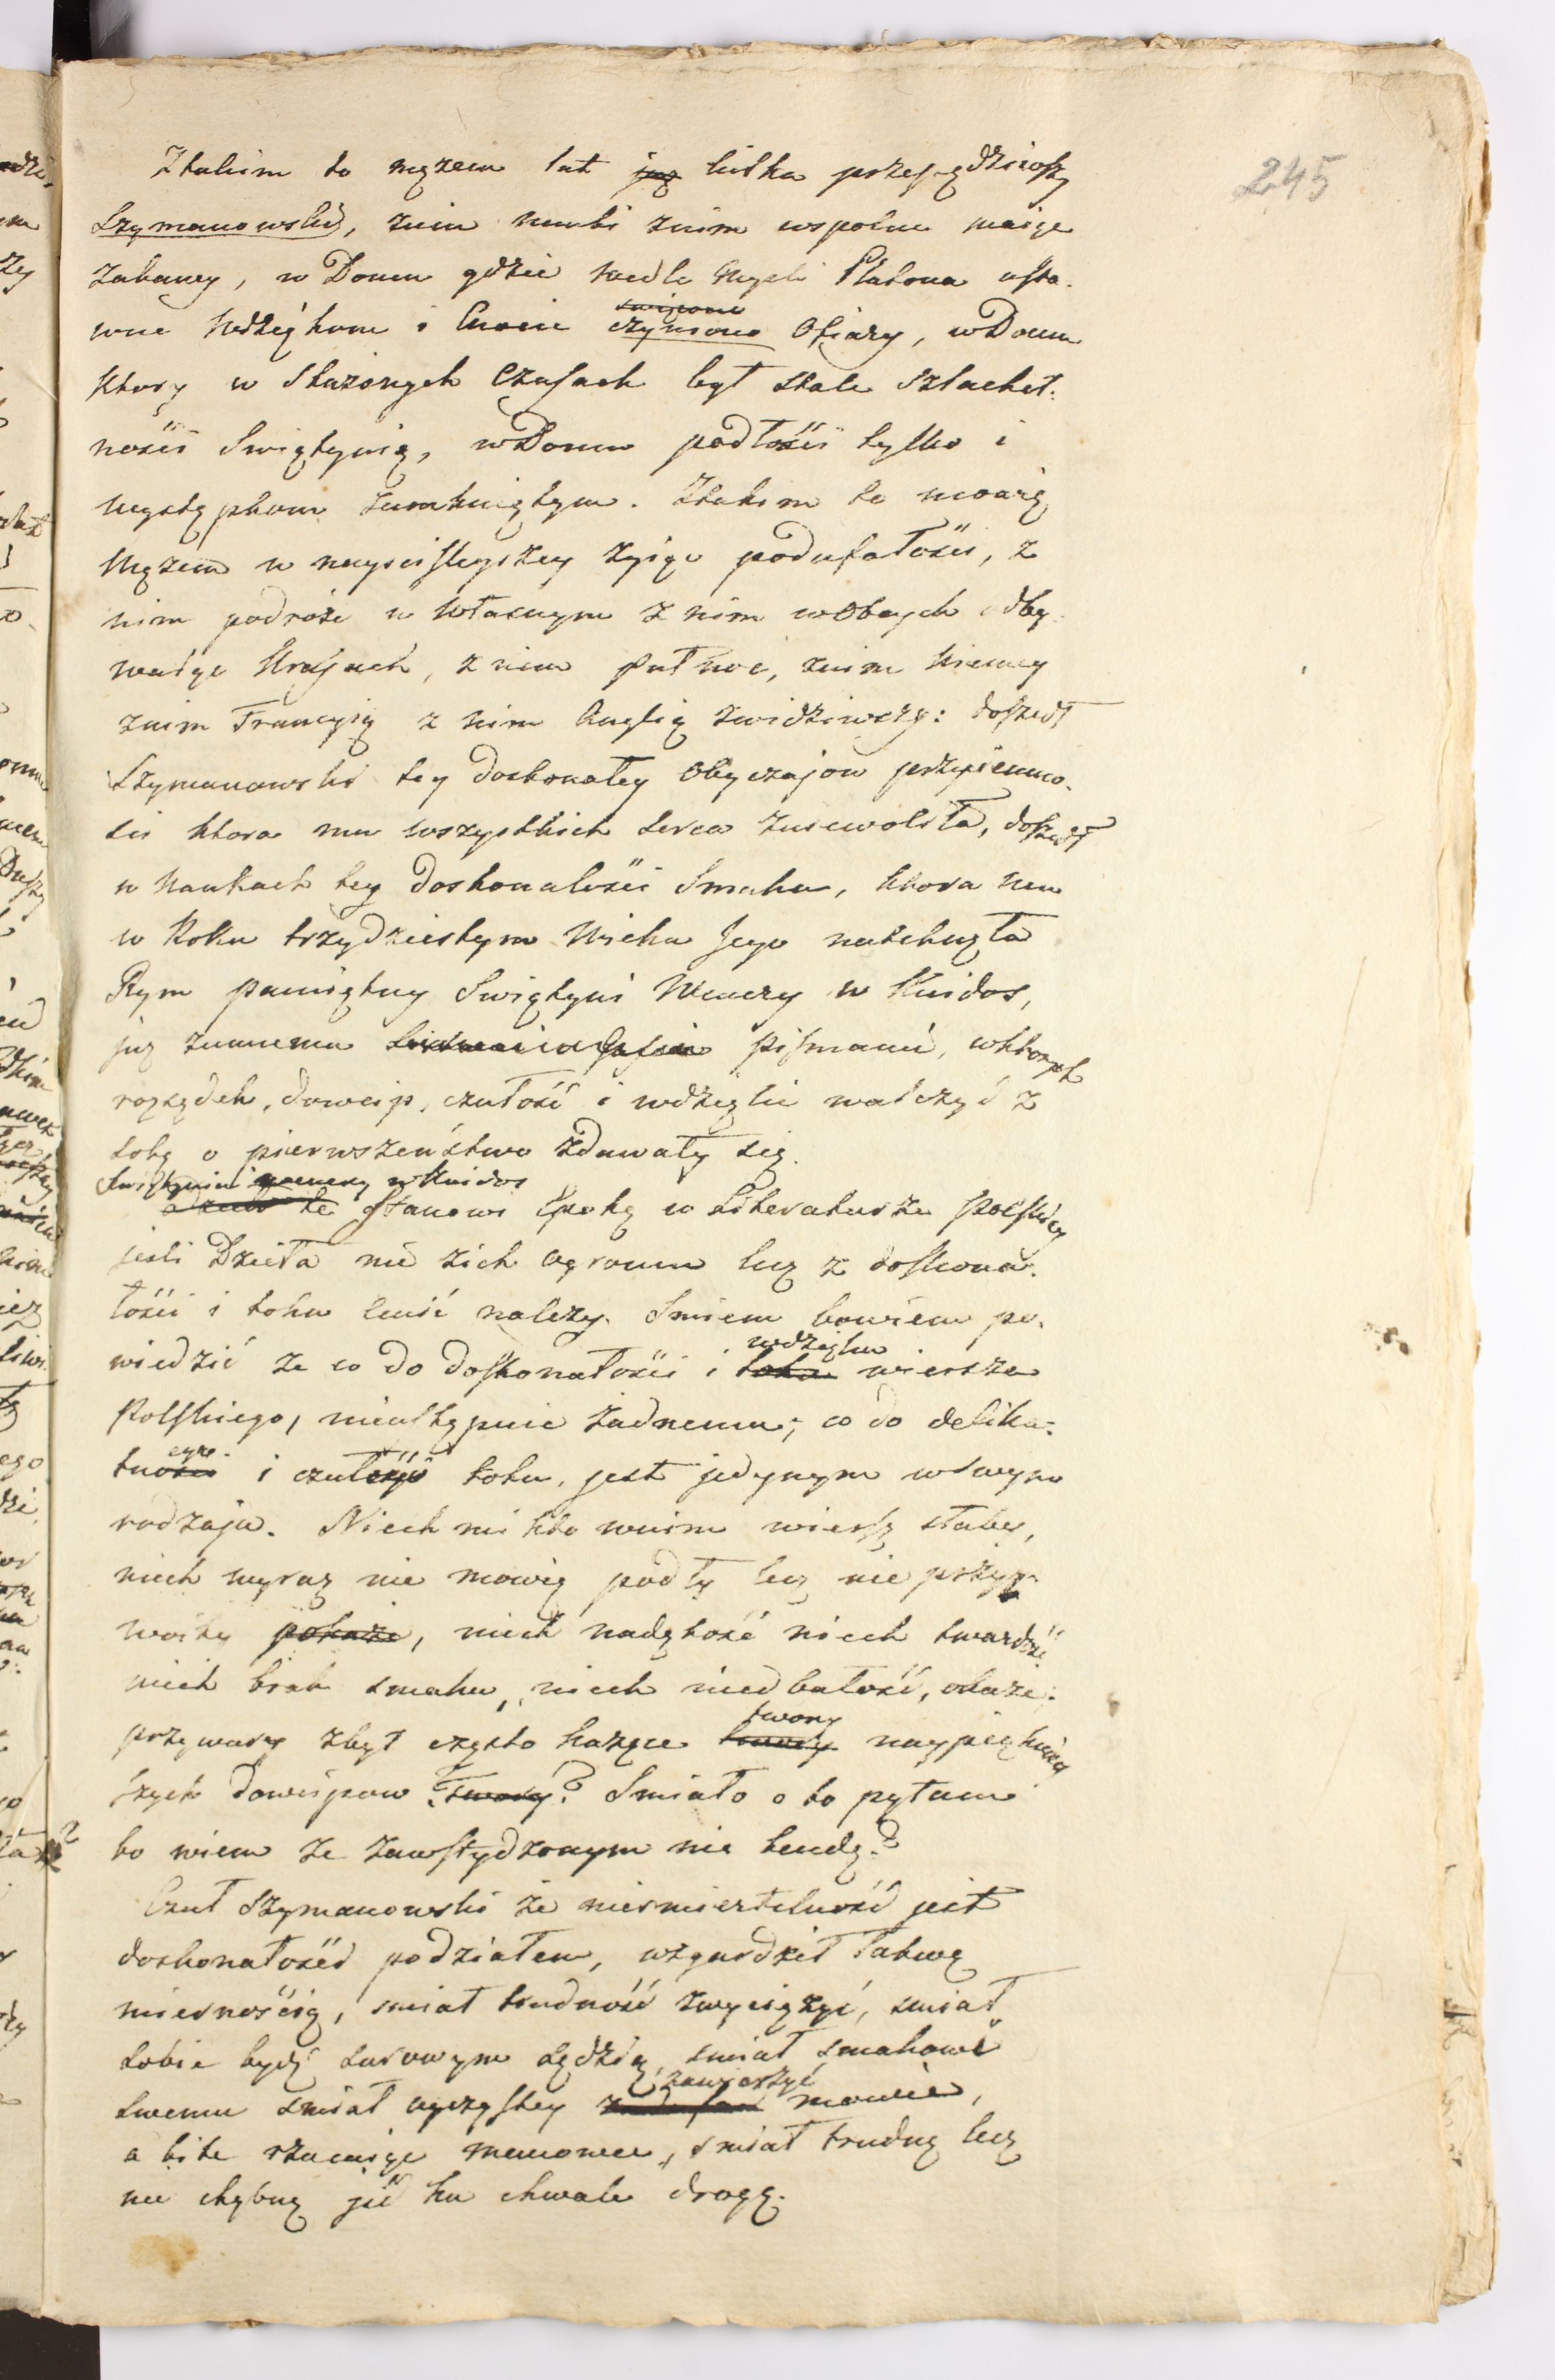 245
Ztakim to męzem lat już kilka przesiędziwszy
Szymanowski, znim nauki znim wspolne maiąc
zabawy, w Domu gdzie wedle mysli Platona usta-
wne Wdziękom i Cnocie czyniono swięcone Ofiary, w Domu
ktory w skazonych Czasach był stale szlachet-
ności Swiątynią, w Domu podłości tylko i
występkom zamkniętym. Ztakim to mowię
Męzem w nayscislejszey zyiąc poufałości, z
nim podróże w własnym z nim w Obcych odby-
waiąc Krajach, z nim Pułnoc, znim Niemcy
znim Francyią z nim Anglią zwidziwszy: doszedł
Szymanowski tey doskonałey Obyczajow przyiemno-
sci ktora mu wszystkich serca zniewoliła, doszedł
w Naukach tey doskonałości Smaku, ktora mu
w Roku trzydziestym Wieku Jego natchnęła
Rym pamiętny Swiątyni Wenery w Knidos,
już znanemu pismami, wktorych
rozsądek, dowcip, czułość i wdzięki walczyć z
sobą o pierwszeństwo zdawały się.
Swiątynia Wenery w Knidos
stanowi Epokę w Literaturze Polskiey
jesli Dzieła nie zich ogromu lecz z doskona-
łości i toku cenić należy. Smiem bowiem po-
wiedzić ze co do doskonałości i toku wdzięku wiersza
Polskiego, nieustępuie żadnemu; co do delika-
tności i czułości toku, jest jedynym wswym
rodzaju. Niech mi kto wnim wiersz słaby,
niech wyraz nie mowię podły lecz nie przyz-
woity pokaże, niech nadętość niech twardość
niech brak smaku, niech niedbałość, okaże.
przywary zbyt często każące twory twory naypiękniey
szych dowcipow twory? Smiało o to pytam
bo wiem ze zawstydzonym nie bendę?
Czuł Szymanowski że niesmiertelność jest
doskonałości podziałem, wzgardził łatwą
miernością, smiał trudność zwyciężyć, smiał
sobie bydź surowym sędzią, smiał smakowi
swemu smiał oyczystey zawierzyć mowie,
a bite rzucaiąc manowce, smiał trudną lecz
nie chybną jić ku chwale drogą.